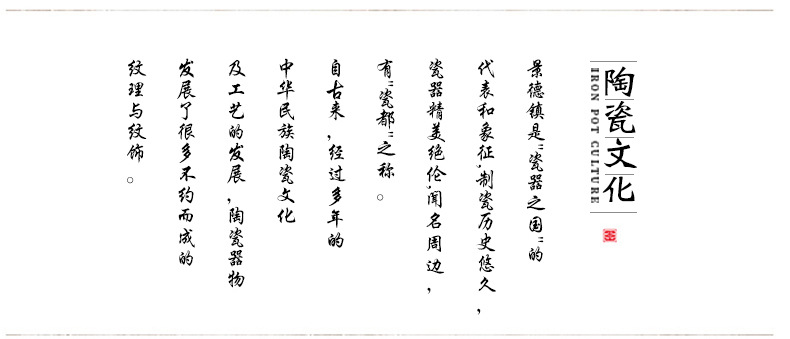 陶瓷文化
IRON POT CULTURE
景德镇是"瓷器之国"的
代表和象征,制瓷历史悠久,
瓷器精美绝伦,闻名周边,
有"瓷都"之称。
自古来,经过多年的
中华民族陶瓷文化
及工艺的发展,陶瓷器物
发展了很多不约而成的
纹理与纹饰。